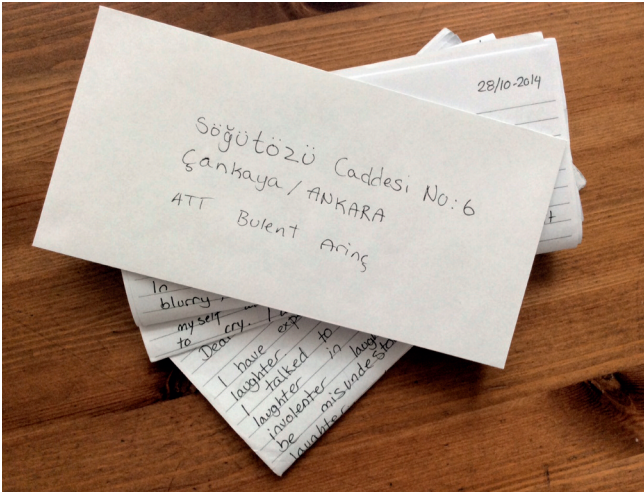 28/10-2014
Söğütözü Caddesi No:6
Çankaya / ANKARA
ATT Bulent Arinç
In
blurry
myself
to cry. I
Dear
I have exp
laughter.
I talked to
laughter in laugh
involenter
be misundeste
laughter